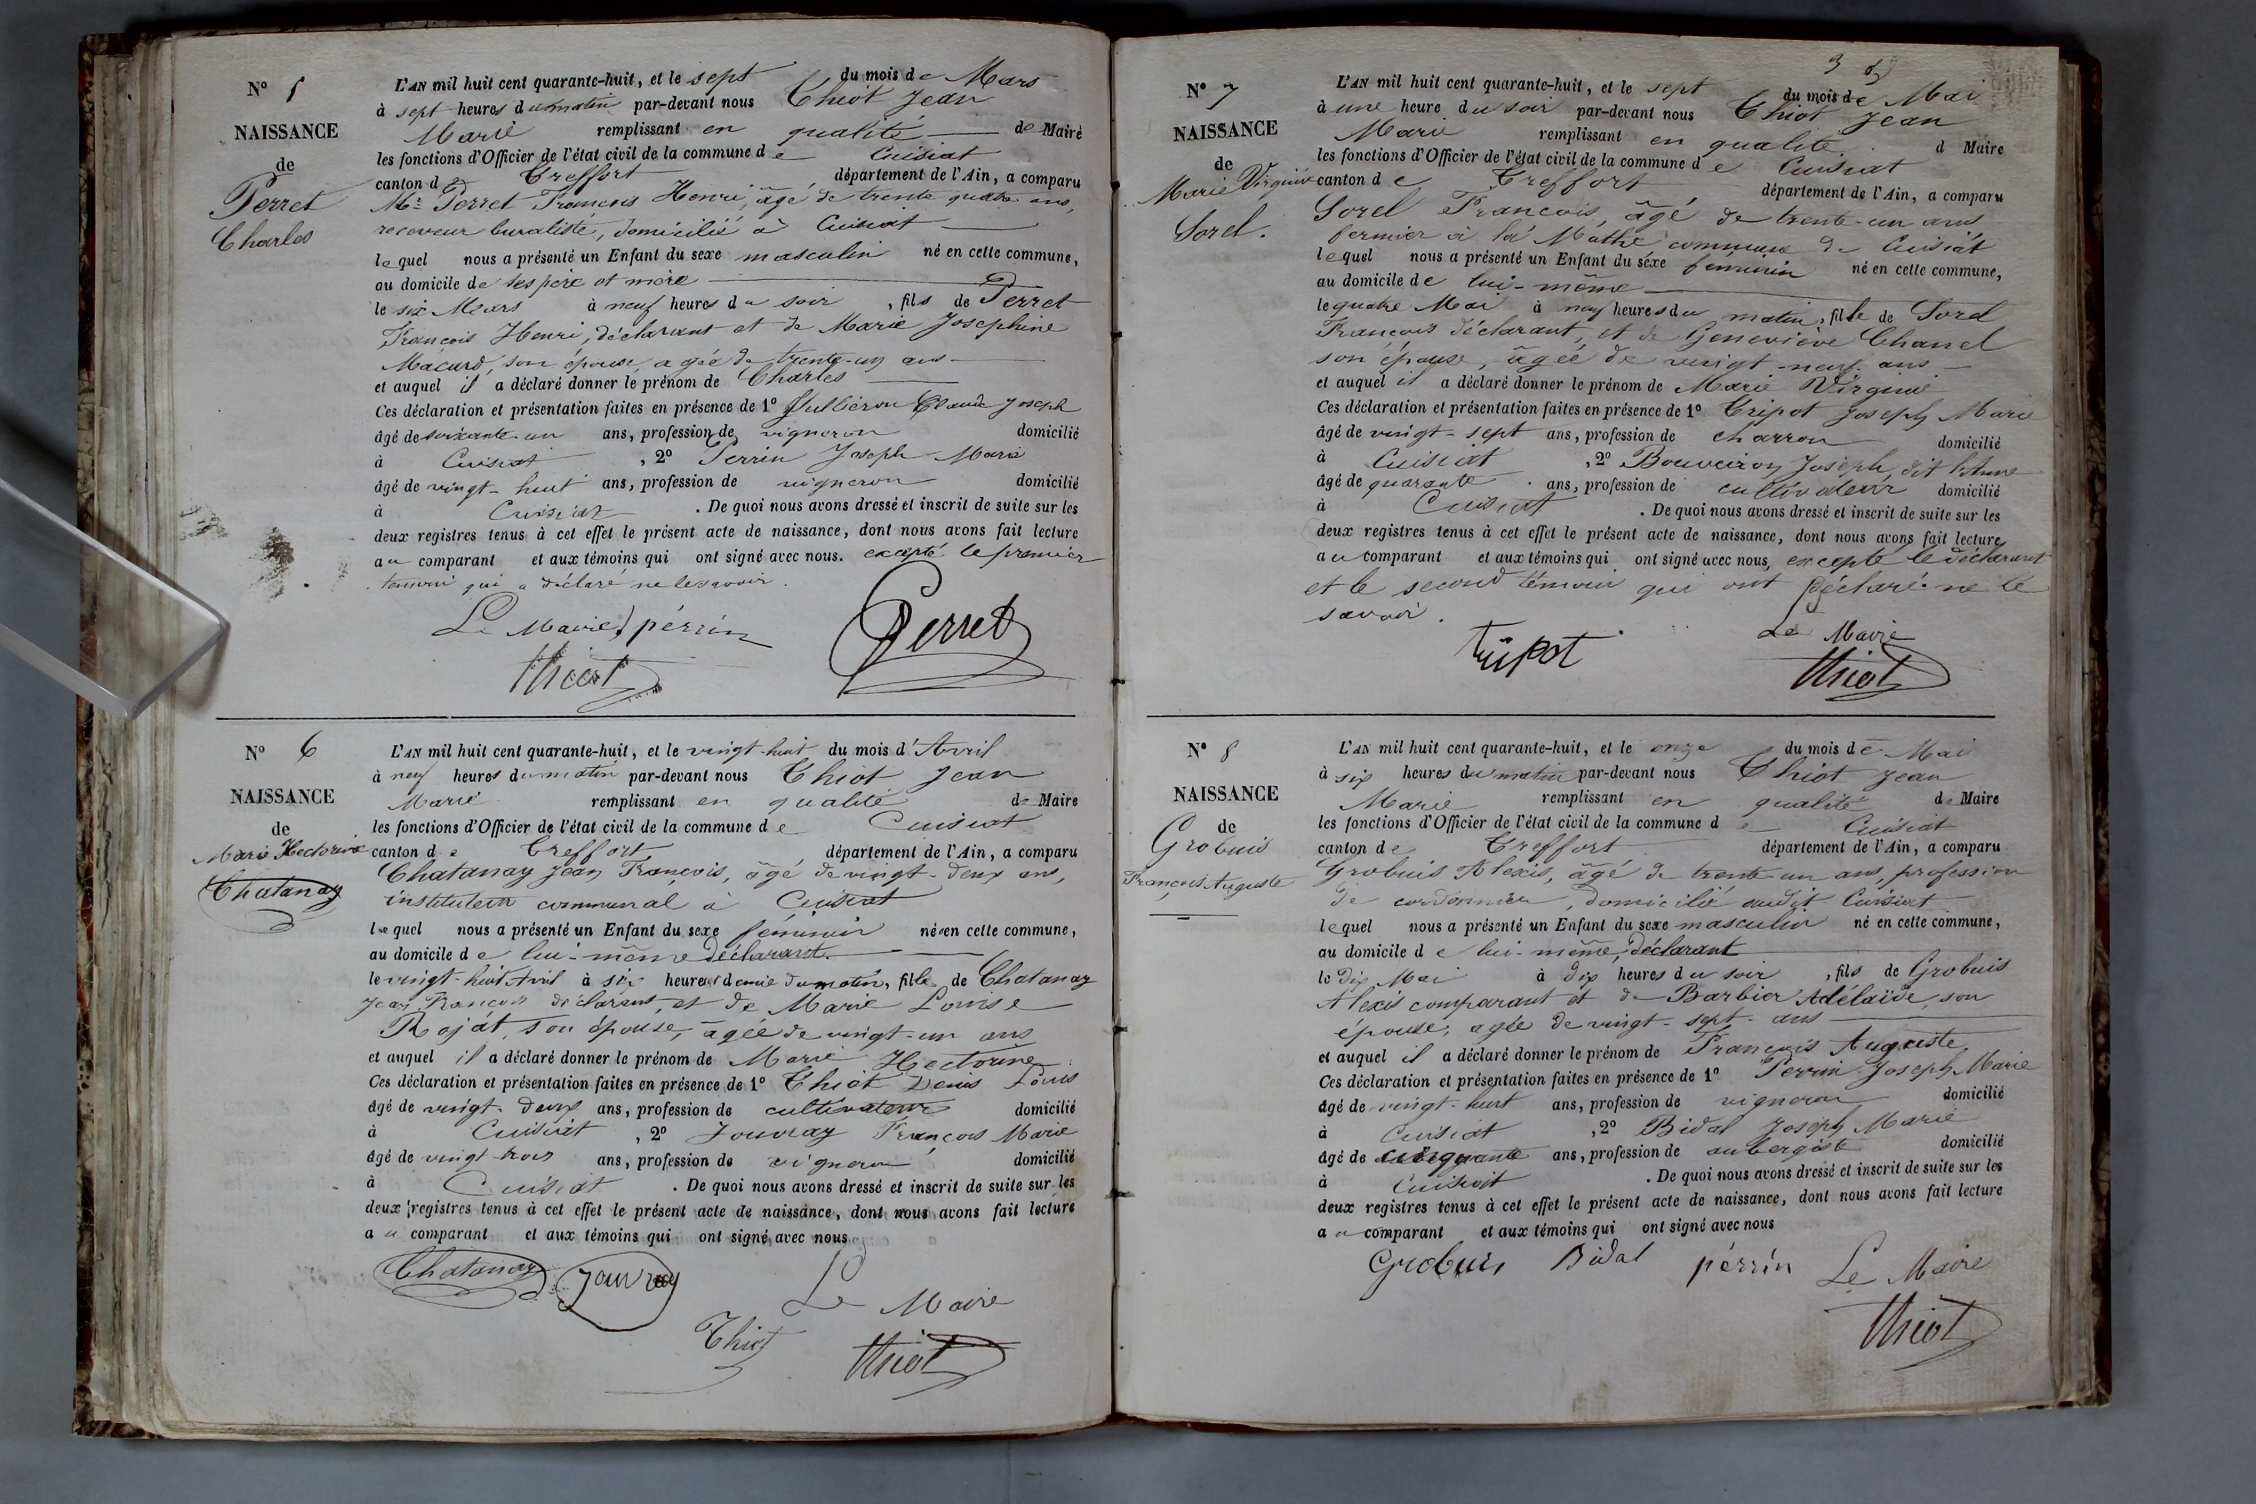 N° 5
NAISSANCE
de
Perret
Charles
L'AN mil huit cent quarante-huit, et le sept du mois de Mars
à sept heures du matin par-devant nous Thiot Jean
Marie remplissant en qualité de Maire
les fonctions d'Officier de l'état civil de la commune de Cuisiat
canton de Treffort département de l'Ain, a comparu
Mr Perret François Henri, âgé de trente quatre ans,
receveur buraliste, domicilié à Cuisiat
lequel nous a présenté un Enfant du sexe masculin né en cette commune,
au domicile de ses père et mère
le six Mars à neuf heures du soir, fils de Perret
François Henri, déclarant et de Marie Josephine
son épouse, agée de trente-un ans
et auquel il a déclaré donner le prénom de Charles
Ces déclaration et présentation faites en présence de 1° Claude Joseph
âgé de soixante-un ans, profession de vigneron domicilié
à Cuisiat, 2° Perrin Joseph Marie
âgé de vingt-huit ans, profession de vigneron domicilié
à Cuisiat. De quoi nous avons dressé et inscrit de suite sur les
deux registres tenus à cet effet le présent acte de naissance, dont nous avons fait lecture
au comparant et aux témoins qui ont signé avec nous. excepté le premier
témoin qui a déclaré ne le savoir.
Le Maire perrin Perret
Thiot
N° 6
NAISSANCE
de
Marie Hectorine
Chatanay
L'AN mil huit cent quarante-huit, et le vingt-huit du mois d'Avril
à neuf heures du matin par-devant nous Thiot Jean
Marie remplissant en qualité de Maire
les fonctions d'Officier de l'état civil de la commune de Cuisiat
canton de Treffort département de l'Ain, a comparu
Chatanay Jean François, âgé de vingt-deux ans,
instituteur communal à Cuisiat
lequel nous a présenté un Enfant du sexe féminin née en cette commune,
au domicile de lui-même déclarant.
le vingt-huit Avril à six heures et demie du matin, fille de Chatanay
Jean François déclarant, et de Marie Louise
Rojat, son épouse, agée de vingt-un ans
et auquel il a déclaré donner le prénom de Marie Hectorine
Ces déclaration et présentation faites en présence de 1° Thiot Denis Louis
âgé de vingt-deux ans, profession de cultivateur domicilié
à Cuisiat, 2° Jouvray François Marie
âgé de vingt trois ans, profession de vigneron domicilié
à Cuisiat. De quoi nous avons dressé et inscrit de suite sur les
deux registres tenus à cet effet le présent acte de naissance, dont nous avons fait lecture
au comparant et aux témoins qui ont signé avec nous
Chatanay Jouvray Le Maire
Thiot Thiot
3
N° 7
NAISSANCE
de
Marie Virginie
Sorel.
L'AN mil huit cent quarante-huit, et le sept du mois de Mai
à une heure du soir par-devant nous Thiot Jean
Marie remplissant en qualité d Maire
les fonctions d'Officier de l'état civil de la commune de Cuisiat
canton de Treffort département de l'Ain, a comparu
Sorel François, âgé de trente-un ans
fermier à la Mathe commune de Cuisiat
lequel nous a présenté un Enfant du sexe féminin né en cette commune,
au domicile de lui-même
le quatre Mai à neuf heures du matin, fille de Sorel
François déclarant, et de Geneviève Chanel
son épouse, âgée de vingt-neuf ans
et auquel il a déclaré donner le prénom de Marie Virginie
Ces déclaration et présentation faites en présence de 1° Tripot Joseph Marie
âgé de vingt-sept ans, profession de charron domicilié
à Cuisiat, 2° Bouveiron Joseph dit
âgé de quarante ans, profession de cultivateur domicilié
à Cuisiat. De quoi nous avons dressé et inscrit de suite sur les
deux registres tenus à cet effet le présent acte de naissance, dont nous avons fait lecture
au comparant et aux témoins qui ont signé avec nous, excepté le déclarant
et le second témoin qui ont déclaré ne le
savoir.
Tripot Le Maire
Thiot
N° 8
NAISSANCE
de
Grobuis
François Auguste
L'AN mil huit cent quarante-huit, et le onze du mois de Mai
à six heures du matin par-devant nous Thiot Jean
Marie remplissant en qualité de Maire
les fonctions d'Officier de l'état civil de la commune de Cuisiat
canton de Treffort département de l'Ain, a comparu
Grobuis Alexis, âgé de trente-un ans, profession
de cordonnier, domicilié audit Cuisiat
lequel nous a présenté un Enfant du sexe masculin né en cette commune,
au domicile de lui-même, déclarant
le dix Mai à dix heures du soir, fils de Grobuis
Alexis comparant et de Barbier Adélaïde, son
épouse, agée de vingt-sept ans
et auquel il a déclaré donner le prénom de François Auguste
Ces déclaration et présentation faites en présence de 1° Perrin Joseph Marie
âgé de vingt-huit ans, profession de vigneron domicilié
à Cuisiat, 2° Bidal Joseph Marie
âgé de cinquante ans, profession de aubergiste domicilié
à Cuisiat. De quoi nous avons dressé et inscrit de suite sur les
deux registres tenus à cet effet le présent acte de naissance, dont nous avons fait lecture
au comparant et aux témoins qui ont signé avec nous
Grobuis Bidal perrin Le Maire
Thiot